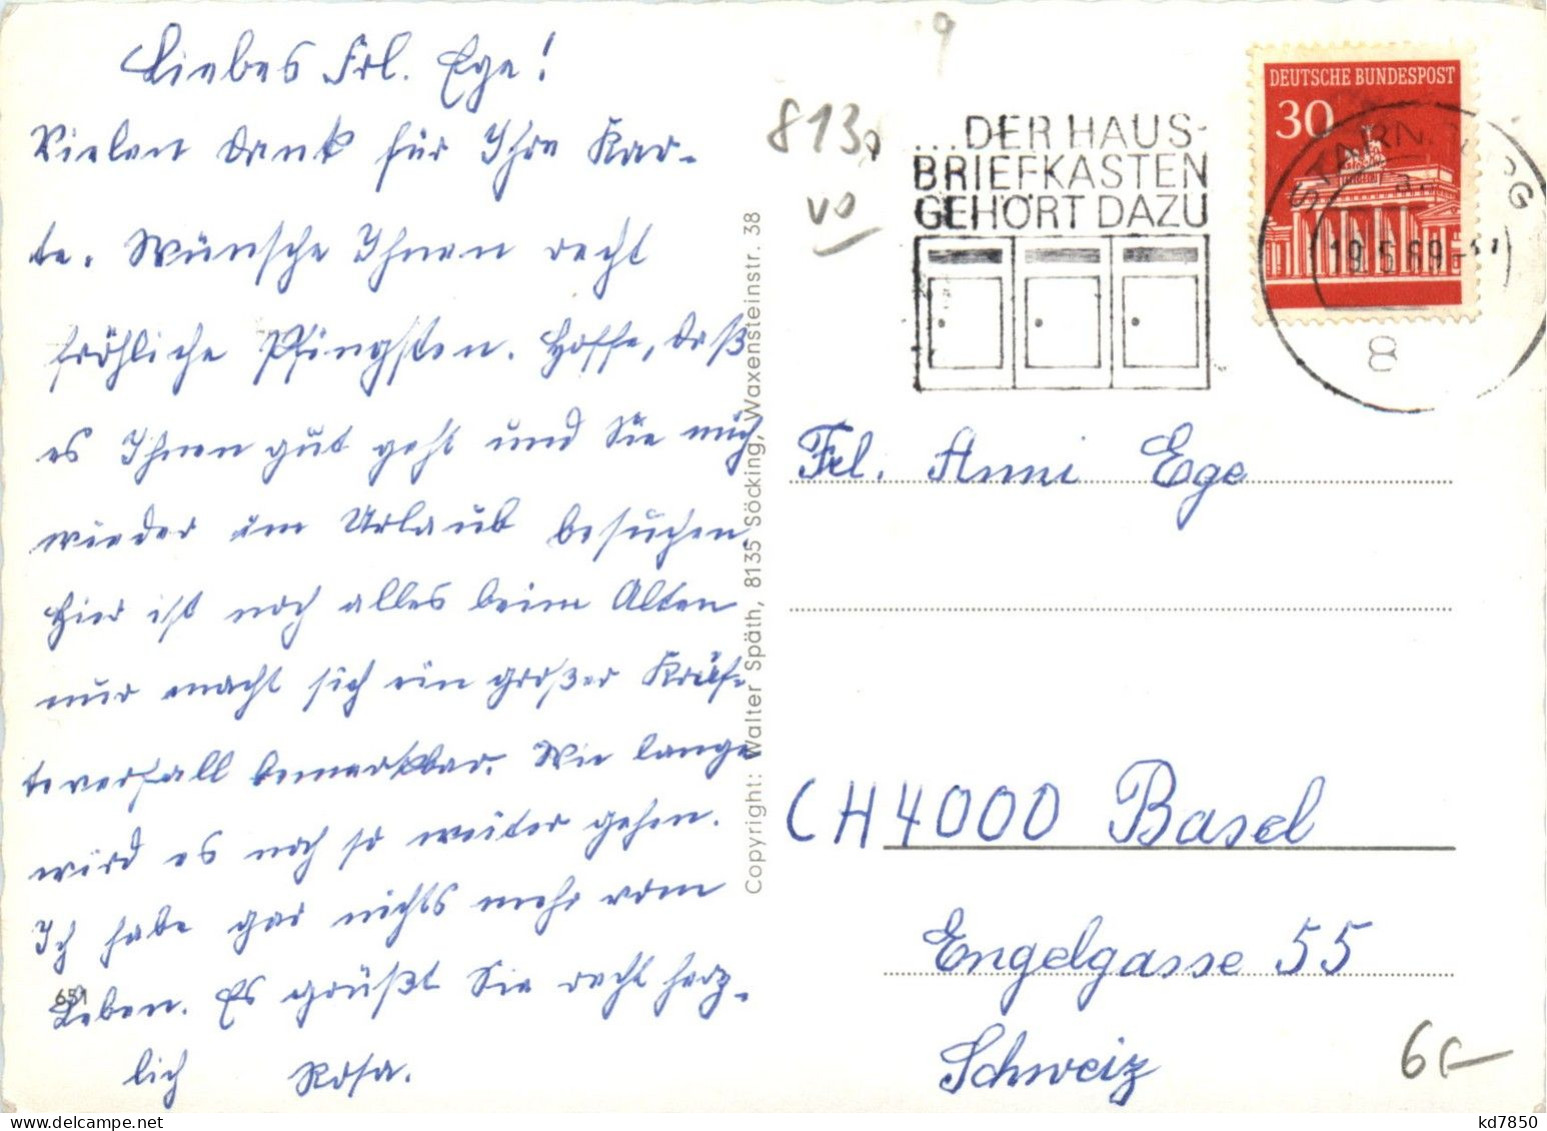 Liebes Frl. Ege!
Vielen Dank für Ihre Kar-
te. Wünsche Ihnen recht
fröhliche Pfingsten. Hoffe, daß
es Ihnen gut geht und Sie mich
wieder im Urlaub besuchen.
Hier ist noch alles beim Alten
nur macht sich ein großer Kräf-
teverfall bemerkbar. Wie lange
wird es noch so weiter gehen.
Ich habe gar nichts mehr vom
Leben. Es grüßt Sie recht herz-
lich Rosa.
651
Copyright: Walter Späth, 8135 Söcking, Waxensteinstr. 38
9
813
vo
...DER HAUS-
BRIEFKASTEN
GEHÖRT DAZU
DEUTSCHE BUNDESPOST
30
19.5.69
8
Frl. Anni Ege
CH 4000 Basel
Engelgasse 55
Schweiz
6.-
kd7850